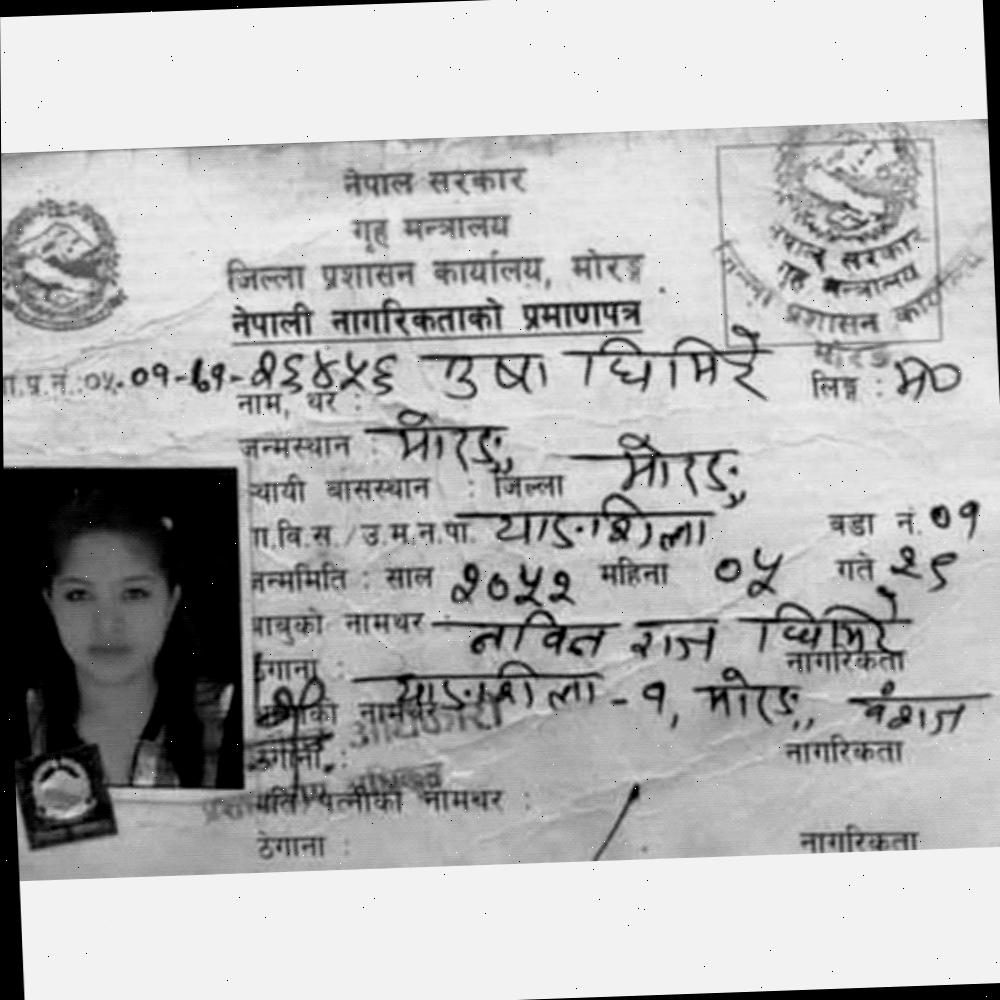 नेपाल सरकार
गृह मन्त्रालय
जिल्ला प्रशासन कार्यालय, मोरङ
नेपाली नागरिकताको प्रमाणपत्र
नेपाल सरकार
गृह मन्त्रालय
जिल्ला प्रशासन कार्यालय
मोरङ
ना.प्र.नं.: ०५-०१-६१-१६४५६ उषा घिमिरे लिङ्ग : म०
नाम, थर :
जन्मस्थान : मोरङ
स्थायी बासस्थान : जिल्ला मोरङ
गा.वि.स./उ.म.न.पा. याङशिला वडा नं. ०१
जन्ममिति : साल २०५२ महिना ०५ गते २९
बाबुको नामथर नविन राज घिमिरे
ठेगाना : नागरिकता
याङशिला - १, मोरङ, वंशज
नामथर
ठेगाना : नागरिकता
पति/पत्नीको नामथर :
ठेगाना : नागरिकता